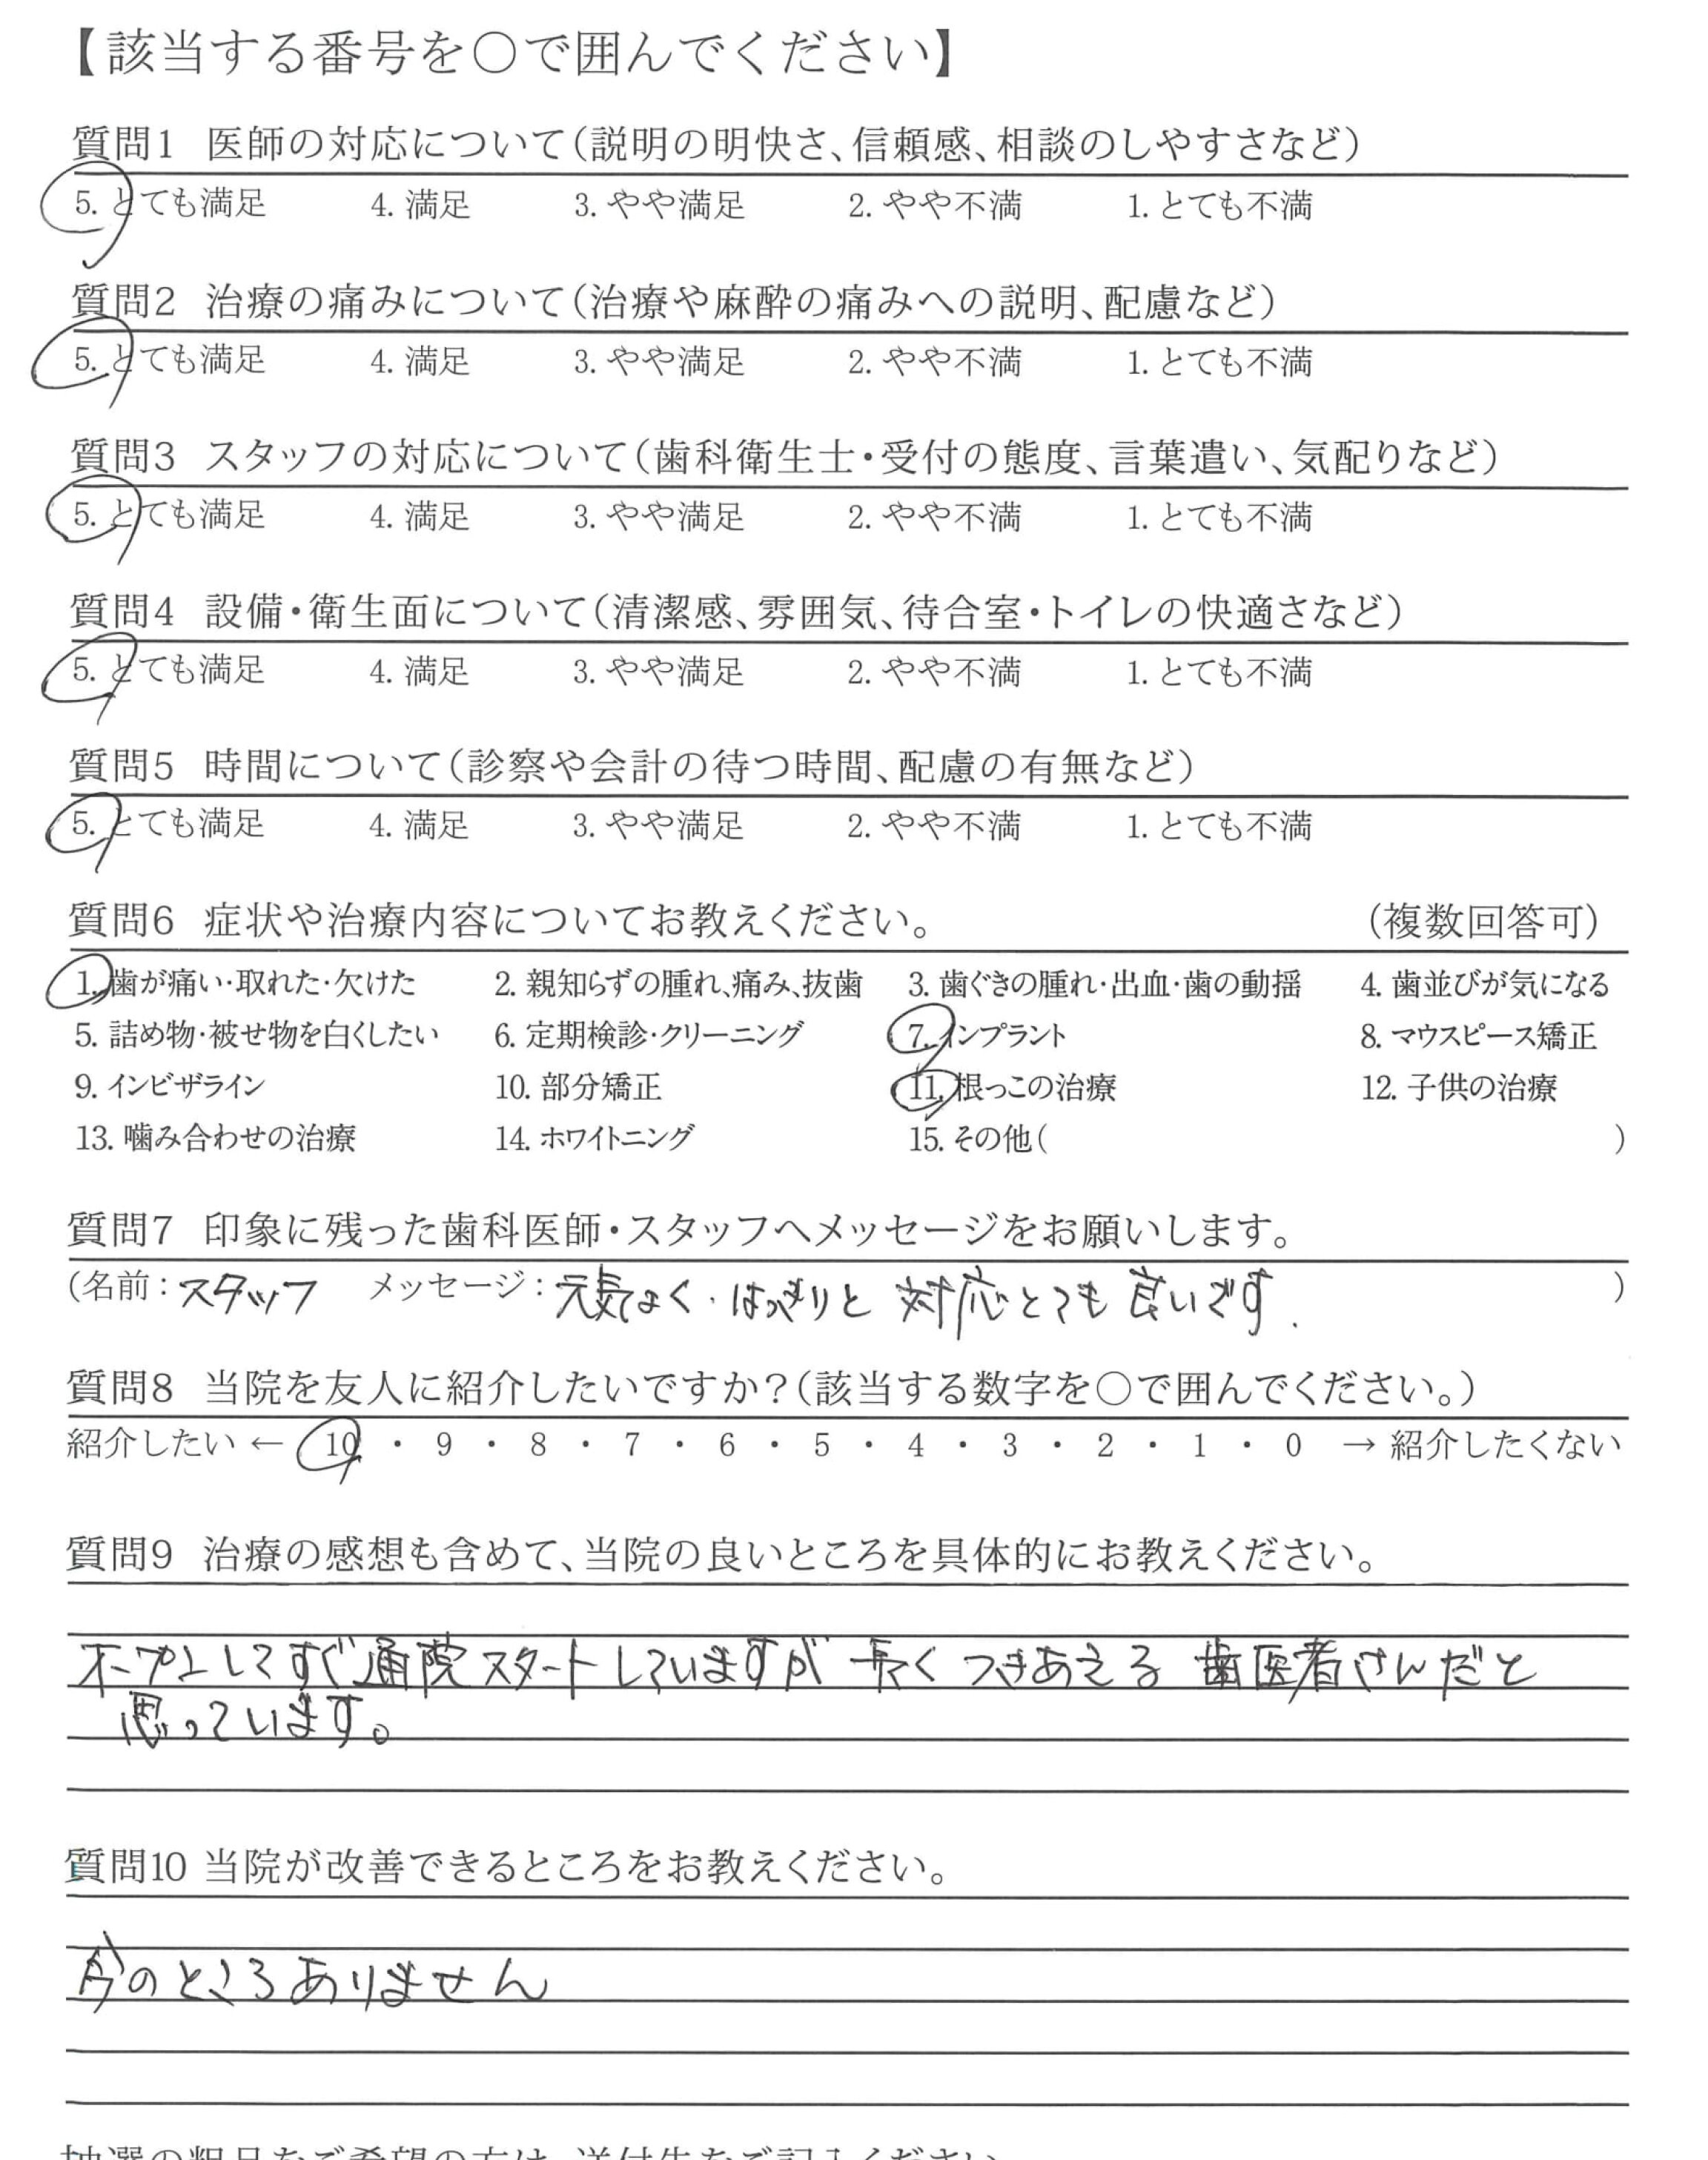 【該当する番号を○で囲んでください】
質問1 医師の対応について(説明の明快さ、信頼感、相談のしやすさなど)
5. とても満足 4. 満足 3. やや満足 2. やや不満 1. とても不満
質問2 治療の痛みについて(治療や麻酔の痛みへの説明、配慮など)
5. とても満足 4. 満足 3. やや満足 2. やや不満 1. とても不満
質問3 スタッフの対応について(歯科衛生士・受付の態度、言葉遣い、気配りなど)
5. とても満足 4. 満足 3. やや満足 2. やや不満 1. とても不満
質問4 設備・衛生面について(清潔感、雰囲気、待合室・トイレの快適さなど)
5. とても満足 4. 満足 3. やや満足 2. やや不満 1. とても不満
質問5 時間について(診察や会計の待つ時間、配慮の有無など)
5. とても満足 4. 満足 3. やや満足 2. やや不満 1. とても不満
質問6 症状や治療内容についてお教えください。 (複数回答可)
1. 歯が痛い・取れた・欠けた 2. 親知らずの腫れ、痛み、抜歯 3. 歯ぐきの腫れ・出血・歯の動揺 4. 歯並びが気になる
5. 詰め物・被せ物を白くしたい 6. 定期検診・クリーニング 7. インプラント 8. マウスピース矯正
9. インビザライン 10. 部分矯正 11. 根っこの治療 12. 子供の治療
13. 噛み合わせの治療 14. ホワイトニング 15. その他( )
質問7 印象に残った歯科医師・スタッフへメッセージをお願いします。
(名前: スタッフ メッセージ: 元気よく はっきりと 対応とても 良いです. )
質問8 当院を友人に紹介したいですか?(該当する数字を○で囲んでください。)
紹介したい ← 10 ・ 9 ・ 8 ・ 7 ・ 6 ・ 5 ・ 4 ・ 3 ・ 2 ・ 1 ・ 0 → 紹介したくない
質問9 治療の感想も含めて、当院の良いところを具体的にお教えください。
オープンしてすぐ通院スタートしていますが 長く つきあえる 歯医者さんだと
思っています。
質問10 当院が改善できるところをお教えください。
今のところありません
抽選の粗品をご希望の方は、送付先をご記入ください